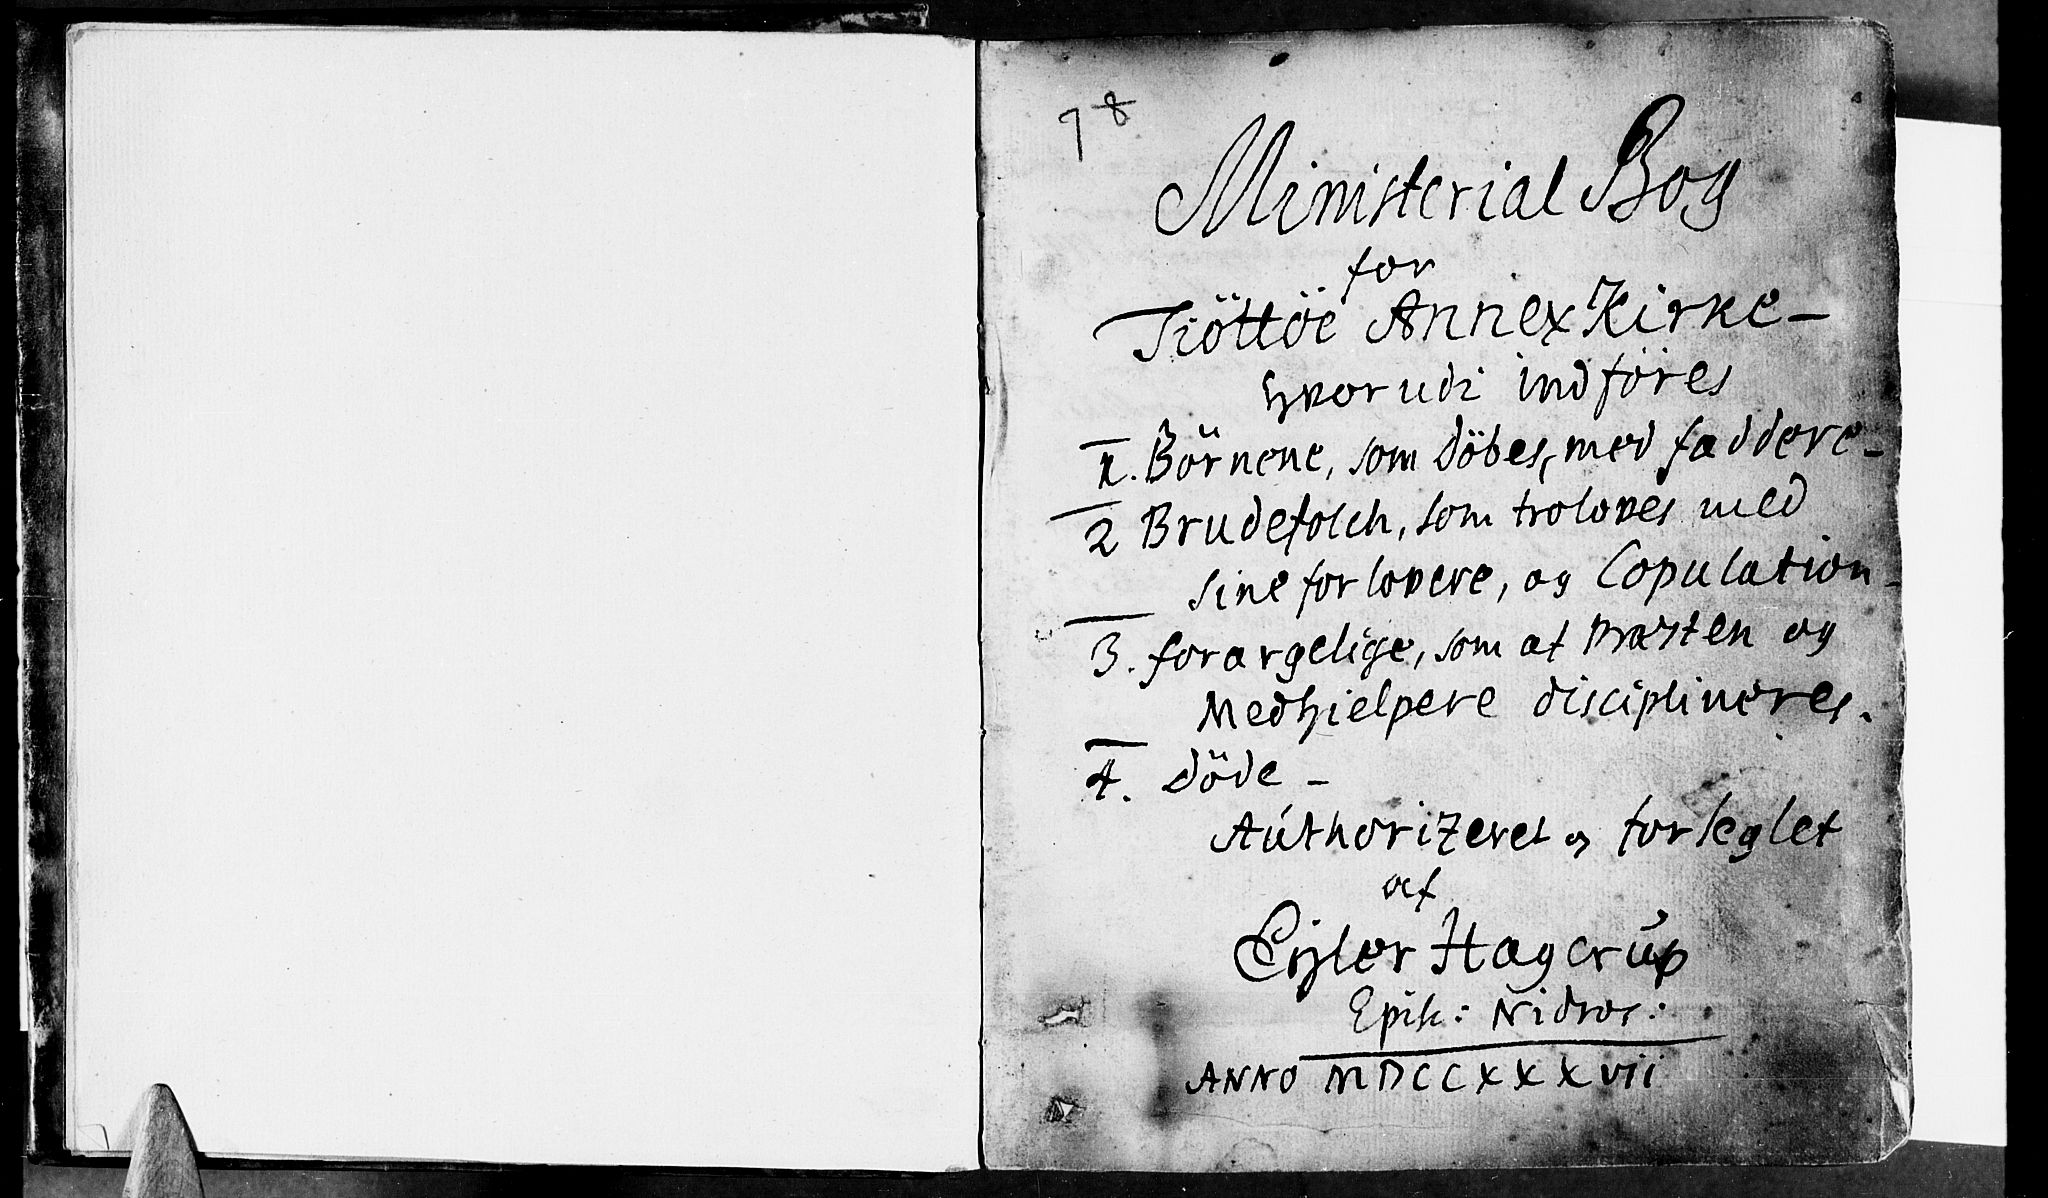 78
Ministerial Bog
for
Tiöttöe Annex Kirke –
hvorudi indföres
1. Börnene, som döbes, med faddere –
2 Brudefolch, som troloves med
sine forlovere, og Copulation –
3. forargelige, som af Præsten og
Medhielpere disciplineres.
4. döde –
Aúthorizeret og forseglet
af
Eijler Hagerúp
Epis: Nidros:
ANNO MDCCXXXVII